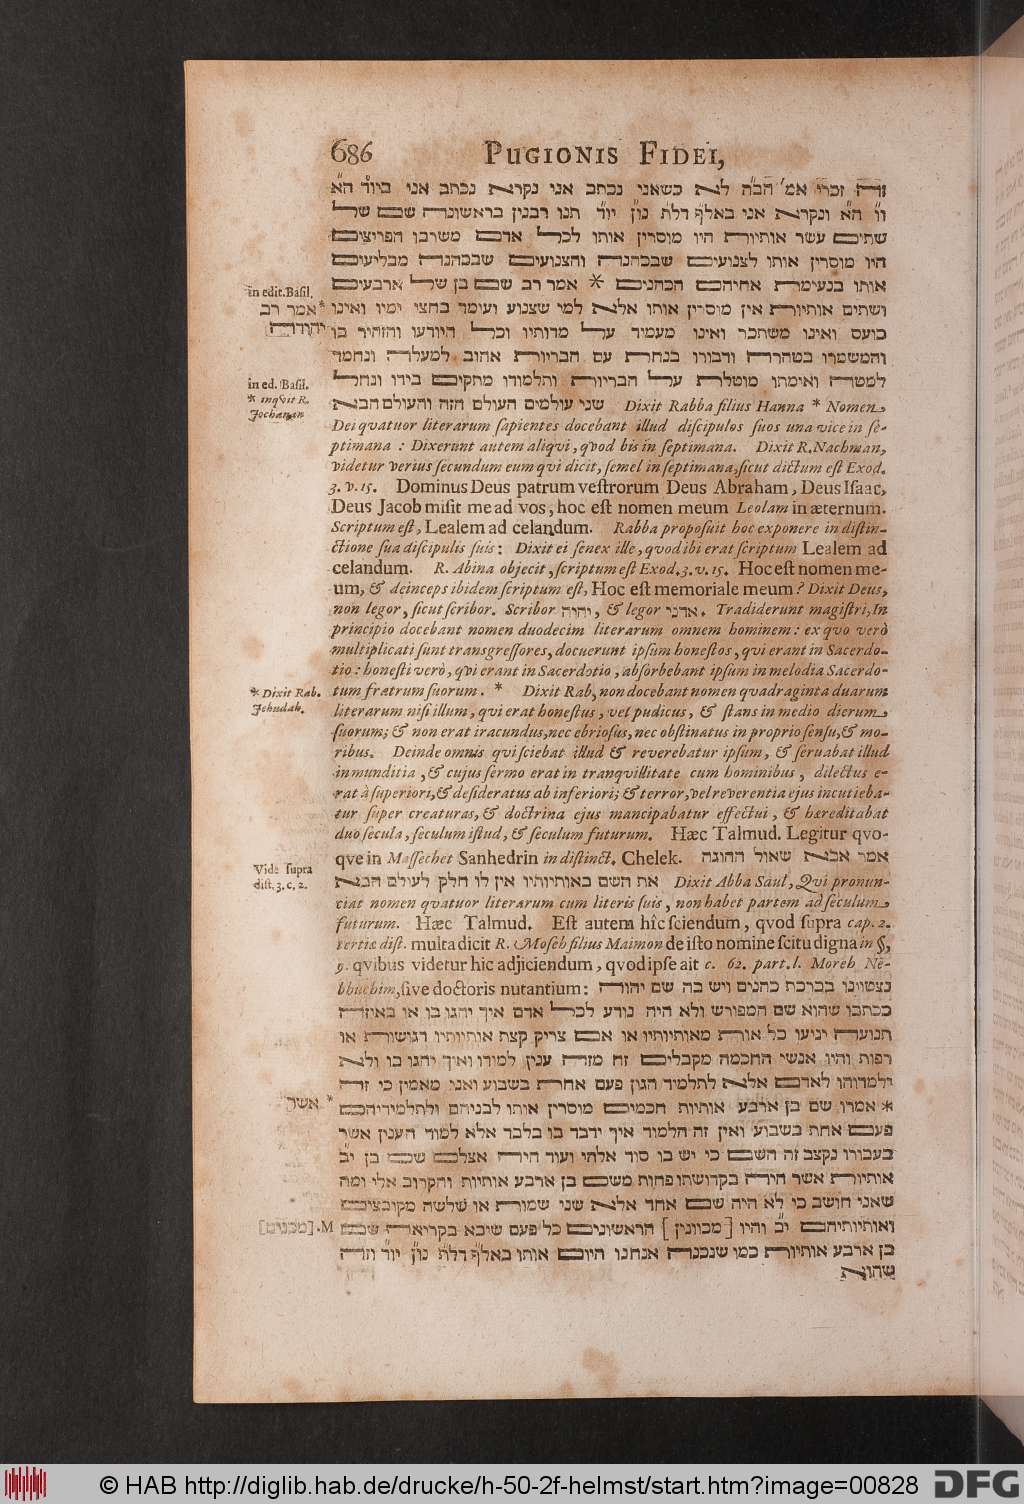 686 PUGIONIS FIDEI,
זה זכרי אמ׳ הב״ה לא כשאני נכתב אני נקרא נכתב אני ביו״ד ה״א
ו״ו ה״א ונקרא אני באל״ף דל״ת נו״ן יו״ד תנו רבנן בראשונה שם של
שתים עשר אותיות היו מוסרין אותו לכל אדם משרבו הפריצים
היו מוסרין אותו לצנועים שבכהנה והצנועים שבכהנה מבליעים
אותו בנעימת אחיהם הכהנים * אמר רב שם בן של ארבעים
in edit. Basil.
* אמר רב
יהודה
ושתים אותיות אין מוסרין אותו אלא למי שצנוע ועומד בחצי ימיו ואינו
כועס ואינו משתכר ואינו מעמיד על מדותיו וכל היודעו והזהיר בו
והמשמרו בטהרה ודבורו בנחת עם הבריות אהוב למעלה ונחמד
למטה ואימתו מוטלת על הבריות ותלמודו מתקים בידו ונחל
in ed. Basil.
* inqvit R.
Jochanan
שני עולמים העולם הזה והעולם הבא Dixit Rabba filius Hanna * Nomen
Dei qvatuor literarum sapientes docebant illud discipulos suos una vice in se-
ptimana : Dixerunt autem aliqvi, qvod bis in septimana. Dixit R. Nachman,
videtur verius secundum eum qvi dicit, semel in septimana, sicut dictum est Exod.
3. v. 15. Dominus Deus patrum vestrorum Deus Abraham, Deus Isaac,
Deus Jacob misit me ad vos, hoc est nomen meum Leolam in æternum.
Scriptum est, Lealem ad celandum. Rabba proposuit hoc exponere in distin-
ctione sua discipulis suis: Dixit ei senex ille, qvod ibi erat scriptum Lealem ad
celandum. R. Abina objecit, scriptum est Exod. 3. v. 15. Hoc est nomen me-
um, & deinceps ibidem scriptum est, Hoc est memoriale meum? Dixit Deus,
non legor, sicut scribor. Scribor יהיה, & legor אדני. Tradiderunt magistri, In
principio docebant nomen duodecim literarum omnem hominem: ex qvo verò
multiplicati sunt transgressores, docuerunt ipsum honestos, qvi erant in Sacerdo-
tio: honesti verò, qvi erant in Sacerdotio, absorbebant ipsum in melodia Sacerdo-
tum fratrum suorum. * Dixit Rab, non docebant nomen quadraginta duarum
* Dixit Rab.
Jehudah.
literarum nisi illum, qvi erat honestus, vel pudicus, & stans in medio dierum
suorum; & non erat iracundus, nec ebriosus, nec obstinatus in proprio sensu, & mo-
ribus. Deinde omnis qvi sciebat illud & reverebatur ipsum, & servabat illud
in munditia, & cujus sermo erat in tranqvillitate cum hominibus, dilectus e-
rat à superiori, & desideratus ab inferiori; & terror, vel reverentia ejus incutieba-
tur super creaturas, & doctrina ejus mancipabatur effectui, & hæreditabat
duo secula, seculum istud, & seculum futurum. Hæc Talmud. Legitur qvo-
qve in Massechet Sanhedrin in distinct. Chelek. אמר אבא שאול ההוגה
Vide supra
dist. 3. c. 2.
את השם באותיותיו אין לו חלק לעולם הבא Dixit Abba Saul, Qvi pronun-
ciat nomen qvatuor literarum cum literis suis, non habet partem ad seculum
futurum. Hæc Talmud. Est autem hîc sciendum, qvod supra cap. 2.
tertiæ dist. multa dicit R. Moseh filius Maimon de isto nomine scitu digna in §,
9. qvibus videtur hic adjiciendum, qvod ipse ait c. 62. part. l. Moreh Ne-
bbuchim, sive doctoris nutantium: נצטוינו בברכת כהנים ויש בה שם יהוה
ככתבו שהוא שם המפורש ולא היה נודע לכל אדם איך יהגו בו או באיזה
תנועה יניעו כל אות מאותיותיו או אם צריך קצת אותיותיו דגושות או
רפות והיו אנשי החכמה מקבלים זה מזה ענין למודו ואיך יהגו בו ולא
ילמדוהו לאדם אלא לתלמיד הגון פעם אחת בשבוע ואני מאמין כי זה
* אשר
* אמרו שם בן ארבע אותיות חכמים מוסרין אותו לבניהם ולתלמידיהם
פעם אחת בשבוע ואין זה הלמוד איך ידבר בו בלבד אלא למוד הענין אשר
בעבורו נקצב זה השם כי יש בו סוד אלהי ועוד היה אצלם שם בן י״ב
אותיות אשר היה בקדושתו פחות משם בן ארבע אותיות והקרוב אלי ומה
שאני חושב כי לא היה שם אחד אלא שני שמות או שלשה מקובצים
ואותיותיהם י״ב והיו [מכוונין] הראשונים כל פעם שיבא בקריאה שם
M. [מכנים]
בן ארבע אותיות כמו שנכנה אנחנו היום אותו באל״ף דל״ת נו״ן יו״ד וזה
שהוא
© HAB http://diglib.hab.de/drucke/h-50-2f-helmst/start.htm?image=00828 DFG